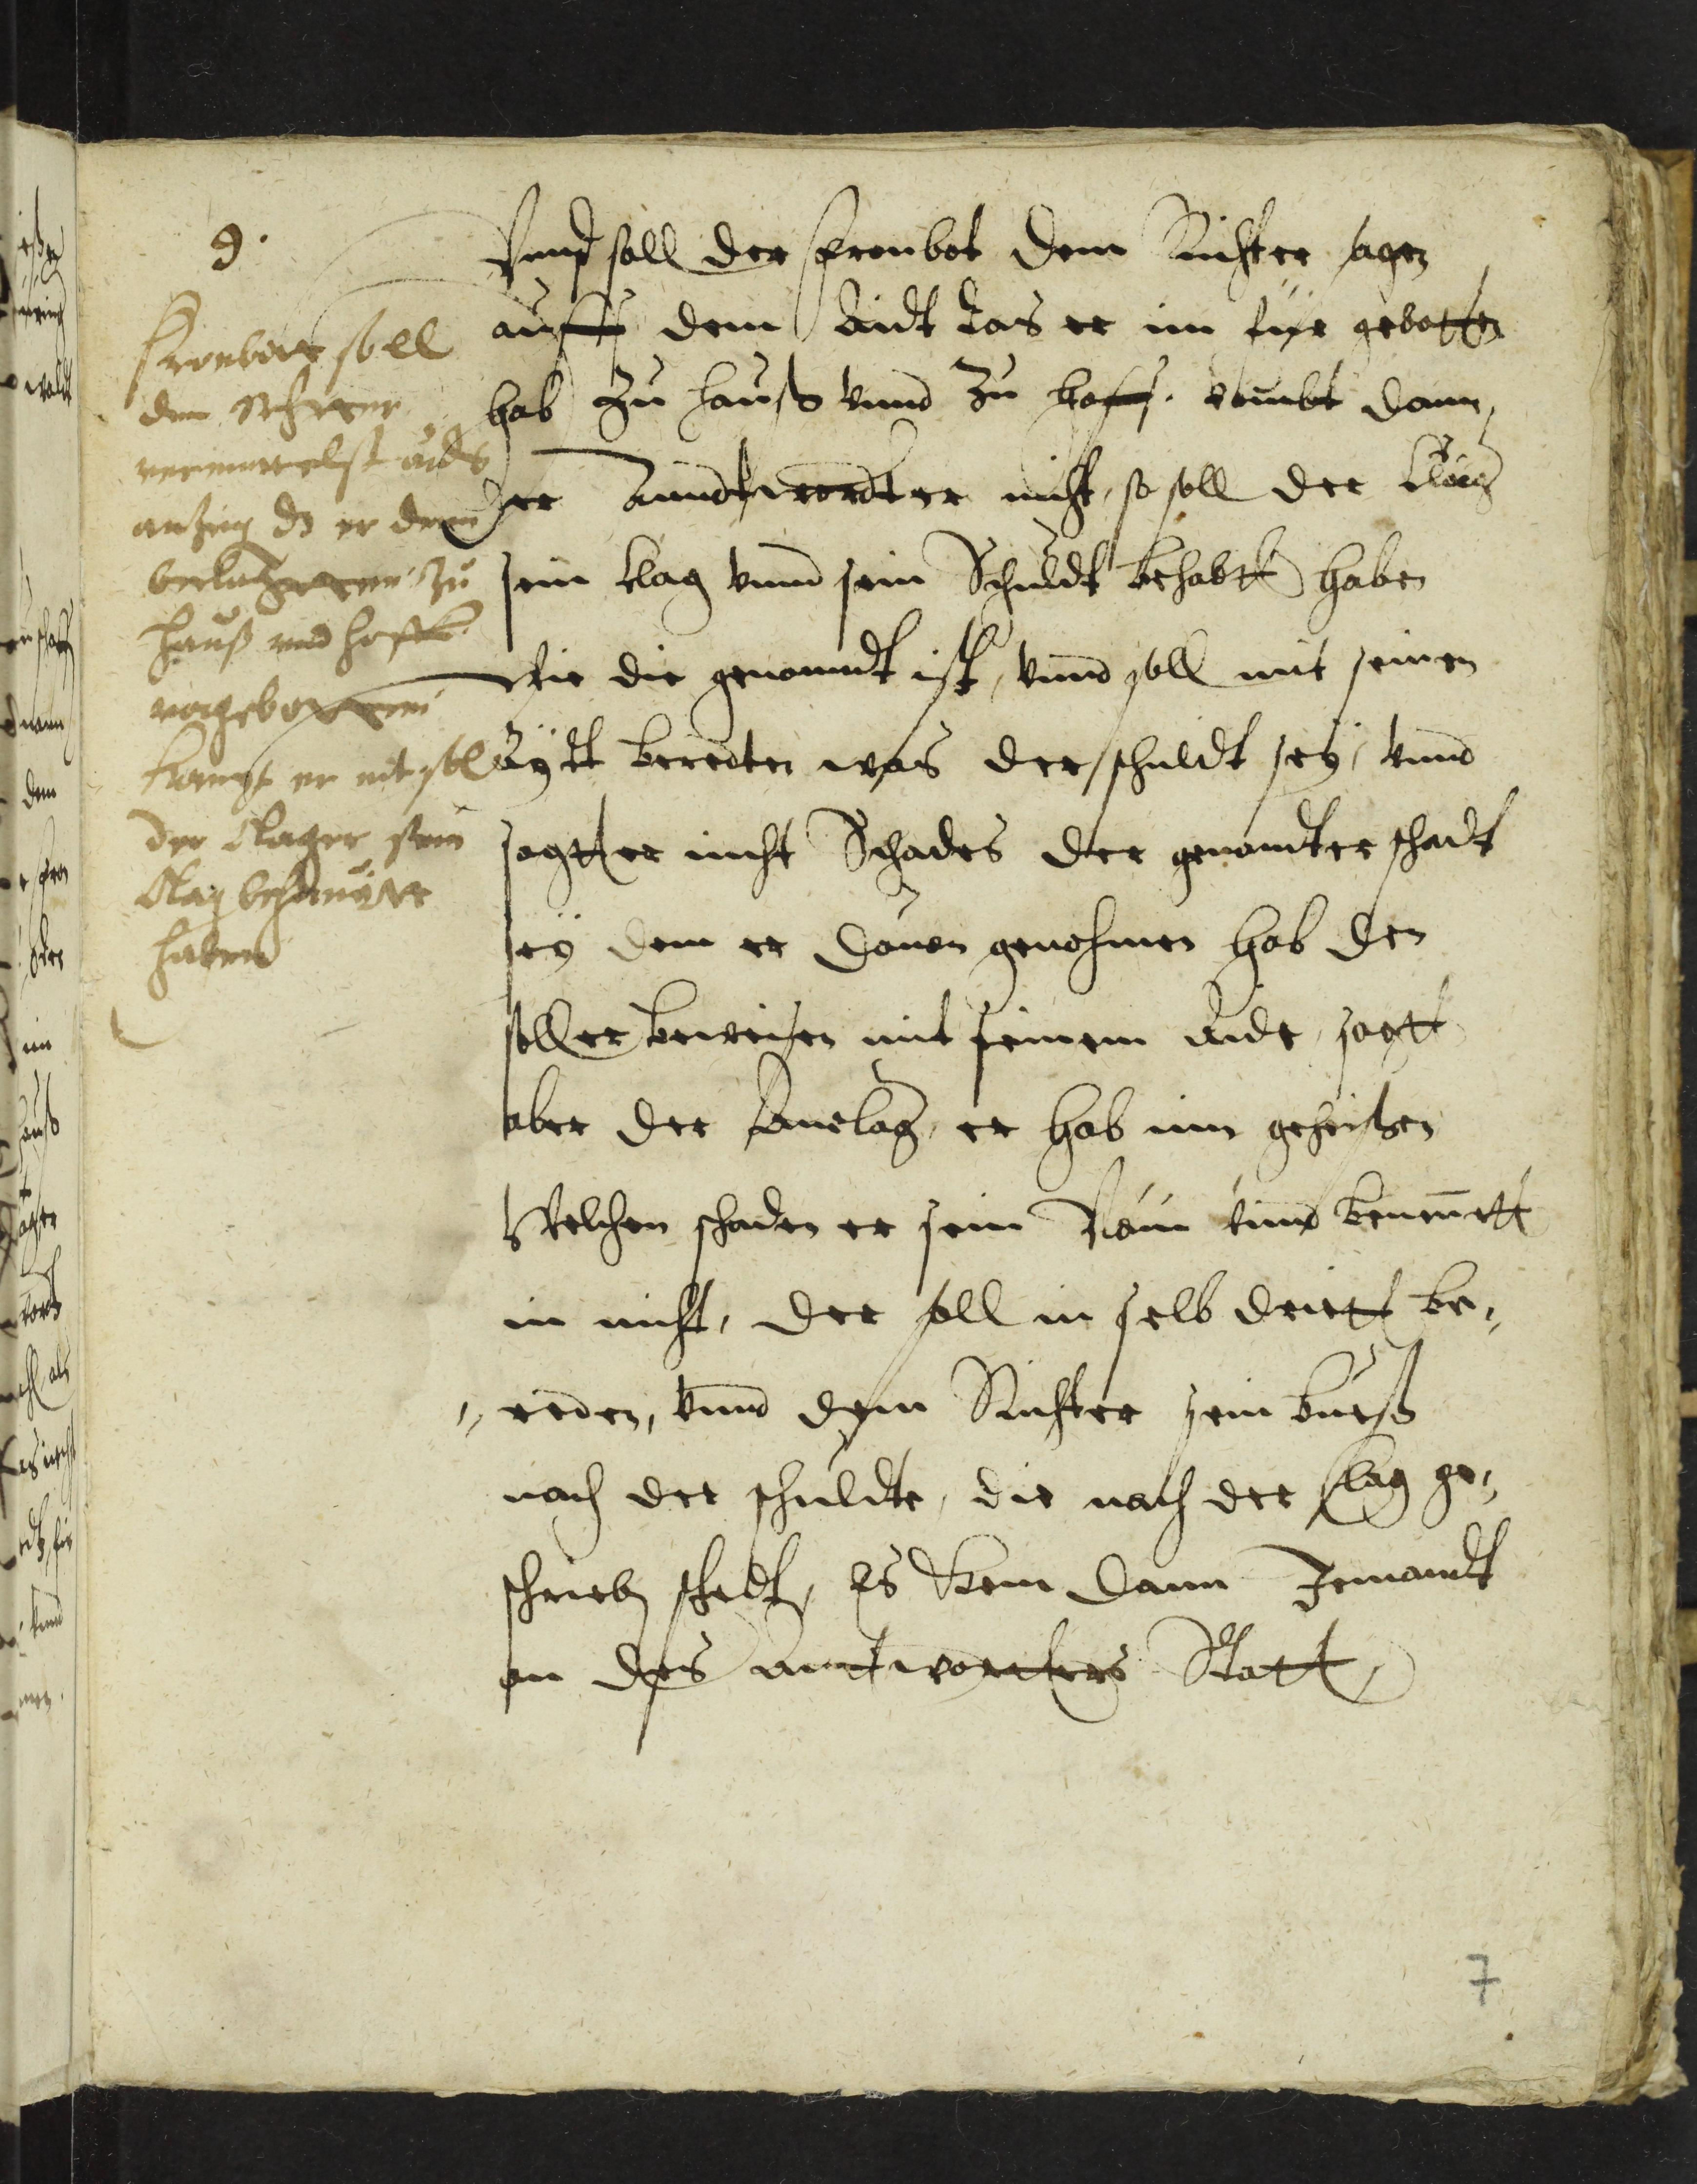 9.
Fronbott soll
dem Richter
vermittelst aids
anzeig dz er dem
beclagtten zu
hauß und hoff
vorgebotten
kompt er nit soll
der Clager sein
Clag behauptt
haben
Vnnd soll der fronbot dem Richter sagen
auff dem Aidt das er im für gebotten
hab zu hauß vnnd zu hoff. kombt dann
der Anndtwordter nicht, so soll der Clag
sein klag vnnd sein Schuldt behabtt haben
wie die genanndt ist, vnnd soll mit seinen
Aydt beredten was der schuldt sey, vnnd
sagtt er nicht Schades der genandter schadt
sey dem er dauon genohmen hab den
soll er beweisen mit seinem Aidt, sagtt
aber der er hab im geheißen
Welchen schaden er sein Nam vnnd benennett
in nicht, der soll in selb dritt be„
„reden, vnnd dem Richter sein bueß
nach der schuldt, die nach der klag ge„
schrieb stedt, Es kem dann Jemandt
an des antwortters Statt,
7